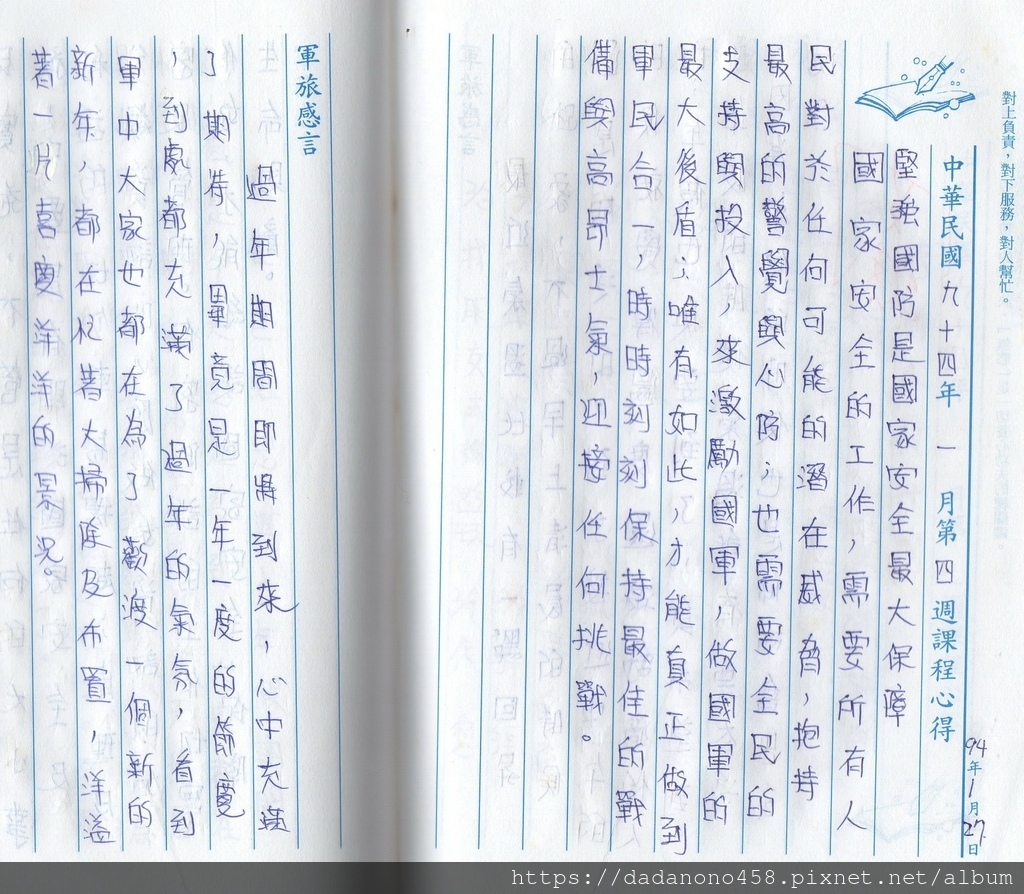 對上負責，對下服務，對人幫忙。
中華民國九十四年 一 月第 四 週課程心得
94年1月27日
堅強國防是國家安全最大保障
國家安全的工作，需要所有人
民對於任何可能的潛在威脅，抱持
最高的警覺與心防；也需要全民的
支持與投入，來激勵國軍，做國軍的
最大後盾；唯有如此，才能真正做到
軍民合一，時時刻刻保持最佳的戰
備與高昂士氣，迎接任何挑戰。
軍旅感言
過年。期間即將到來，心中充滿
了期待，畢竟是一年一度的節慶
，到處都充滿了過年的氣氛，看到
軍中大家也都在為了歡渡一個新的
新年，都在忙著大掃除及布置，洋溢
著一片喜慶洋洋的景況。
https://dadanono458.pixnet.net/album